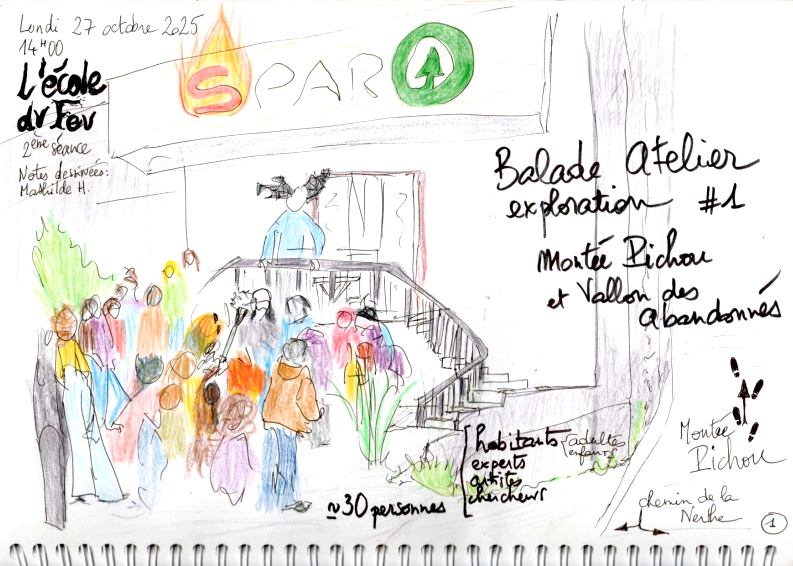 Lundi 27 octobre 2025
14H00
L'école
du Feu
2ème séance
Notes dessinées:
Mathilde H.
SPAR
Balade Atelier
exploration #1
Montée Pichou
et Vallon des
Abandonnés
habitants
adultes
enfants
experts
artistes
chercheurs
≃30 personnes
Montée
Pichou
chemin de la
Nerthe
1